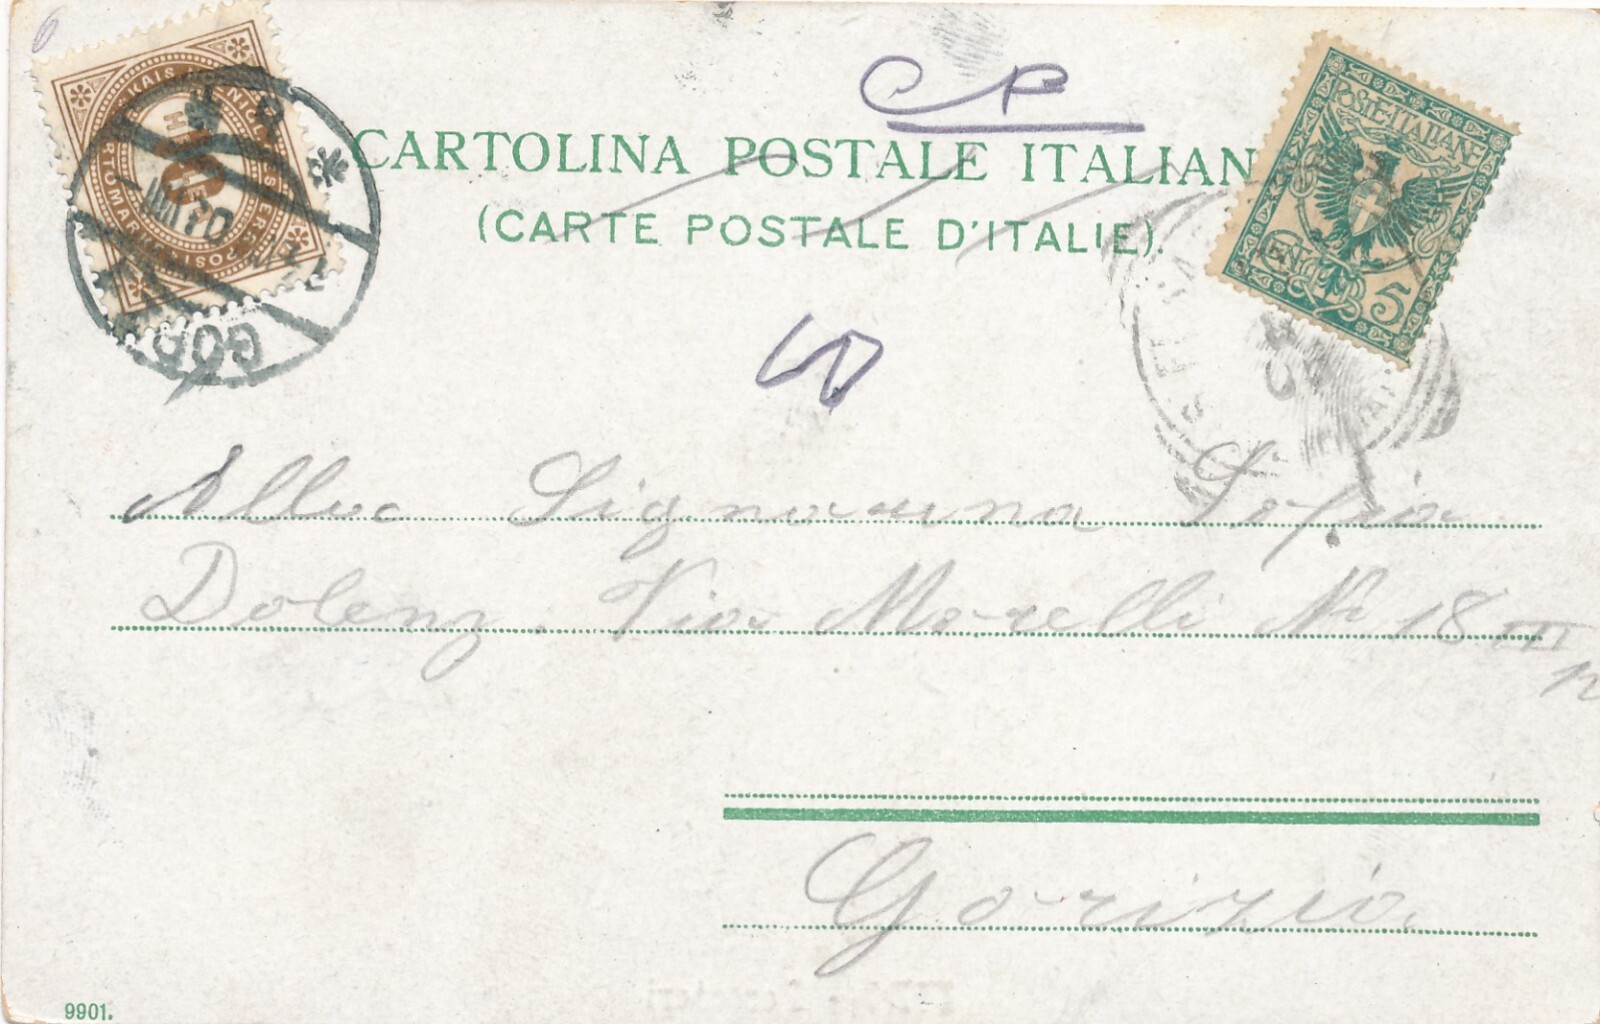 CARTOLINA POSTALE ITALIAN
(CARTE POSTALE D'ITALIE).
POSTE·ITALIANE
CENT. 5
10
HELLER
GOR
Alla Signorina Sofia
Dolenz. Via Morelli No 18 III
p
Gorizia
9901.